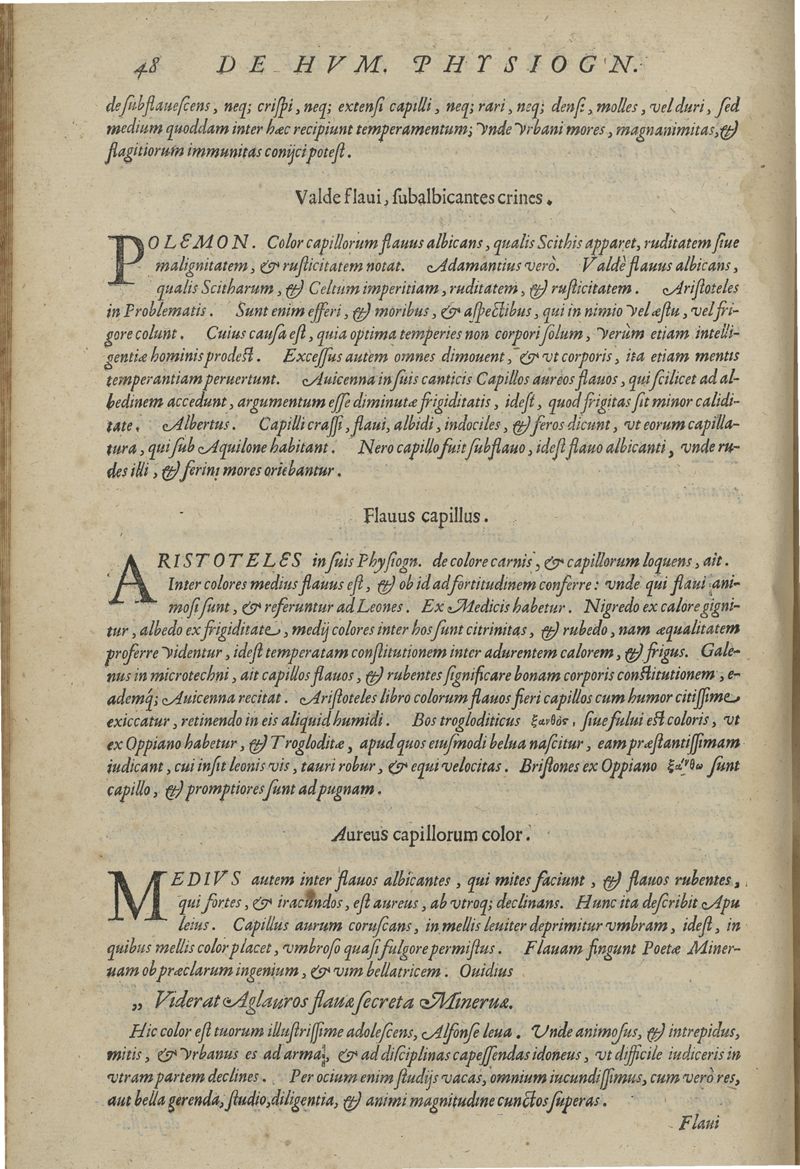 48 DE HVM. PHYSIOGN.
de subflauescens, neq; crispi, neq; extensi capilli, neq; rari, neq; densi, molles, vel duri, sed
medium quoddam inter hæc recipiunt temperamentum; vnde vrbani mores, magnanimitas, &
flagitiorum immunitas conijci potest.
Valde flaui, subalbicantes crines.
POLEMON. Color capillorum flauus albicans, qualis Scithis apparet, ruditatem siue
malignitatem, & rusticitatem notat. Adamantius verò. Valdè flauus albicans,
qualis Scitharum, & Celtum imperitiam, ruditatem, & rusticitatem. Aristoteles
in Problematis. Sunt enim efferi, & moribus, & aspectibus, qui in nimio vel æstu, vel fri-
gore colunt. Cuius causa est, quia optima temperies non corpori solum, verùm etiam intelli-
gentiæ hominis prodest. Excessus autem omnes dimouent, & vt corporis, ita etiam mentis
temperantiam peruertunt. Auicenna in suis canticis Capillos aureos flauos, qui scilicet ad al-
bedinem accedunt, argumentum esse diminutæ frigiditatis, idest, quod frigitas sit minor calidi-
tate. Albertus. Capilli crassi, flaui, albidi, indociles, & feros dicunt, vt eorum capilla-
tura, qui sub Aquilone habitant. Nero capillo fuit subflauo, idest flauo albicanti, vnde ru-
des illi, & ferini mores oriebantur.
Flauus capillus.
ARISTOTELES in suis Physiogn. de colore carnis, & capillorum loquens, ait.
Inter colores medius flauus est, & ob id ad fortitudinem conferre: vnde qui flaui ani-
mosi sunt, & referuntur ad Leones. Ex Medicis habetur. Nigredo ex calore gigni-
tur, albedo ex frigiditate, medij colores inter hos sunt citrinitas, & rubedo, nam æqualitatem
proferre videntur, idest temperatam constitutionem inter adurentem calorem, & frigus. Gale-
nus in microtechni, ait capillos flauos, & rubentes significare bonam corporis constitutionem, e-
ademq́; Auicenna recitat. Aristoteles libro colorum flauos fieri capillos cum humor citissime
exiccatur, retinendo in eis aliquid humidi. Bos trogloditicus ξανθὸς, siue fului est coloris, vt
ex Oppiano habetur, & Trogloditæ, apud quos eiusmodi belua nascitur, eam præstantissimam
iudicant, cui insit leonis vis, tauri robur, & equi velocitas. Bristones ex Oppiano ξάνθω sunt
capillo, & promptiores sunt ad pugnam.
Aureus capillorum color.
MEDIVS autem inter flauos albicantes, qui mites faciunt, & flauos rubentes,
qui fortes, & iracundos, est aureus, ab vtroq; declinans. Hunc ita describit Apu
leius. Capillus aurum coruscans, in mellis leuiter deprimitur vmbram, idest, in
quibus mellis color placet, vmbroso quasi fulgore permistus. Flauam fingunt Poetæ Miner-
uam ob præclarum ingenium, & vim bellatricem. Ouidius
„ Viderat Aglauros flauæ secreta Mineruæ.
Hic color est tuorum illustrissime adolescens, Alfonse leua. Vnde animosus, & intrepidus,
mitis, & vrbanus es ad arma, & ad disciplinas capessendas idoneus, vt difficile iudiceris in
vtram partem declines. Per ocium enim studijs vacas, omnium iucundissimus, cum verò res,
aut bella gerenda, studio, diligentia, & animi magnitudine cunctos superas.
Flaui